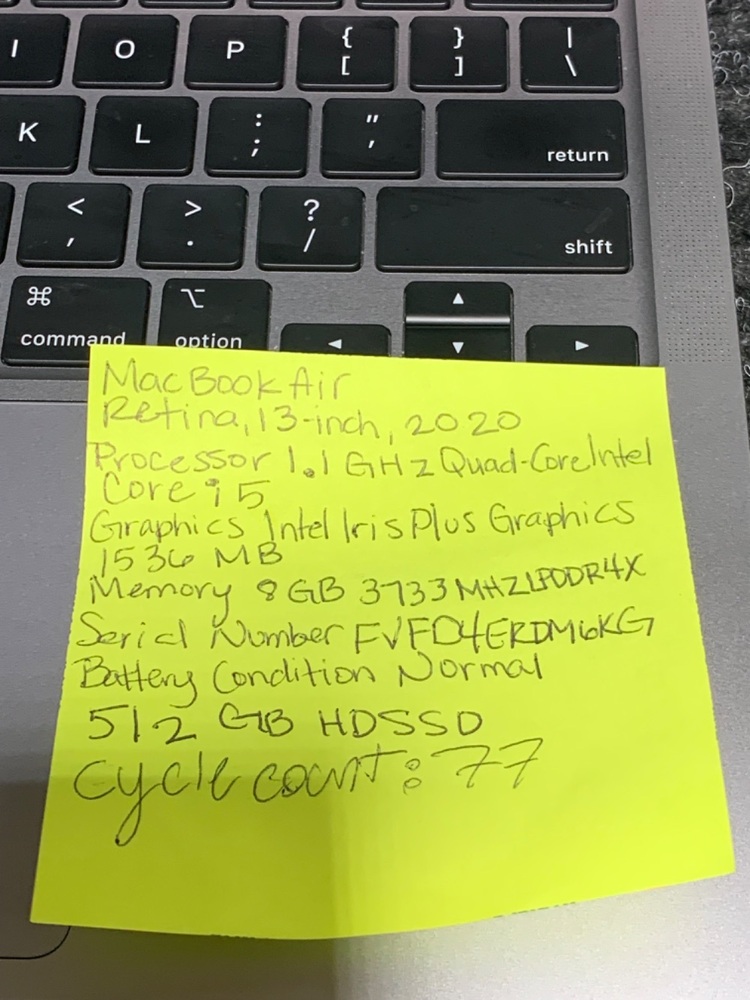 I O P { [ } ] | \
K L : ; " ' return
< , > . ? / shift
⌘ ⌥ ▲
command option ◀ ▼ ▶
MacBook Air
Retina, 13-inch, 2020
Processor 1.1 GHz Quad-Core Intel
Core i5
Graphics Intel Iris Plus Graphics
1536 MB
Memory 8GB 3733 MHZ LPDDR4X
Serial Number FVFD4ERDM6KG
Battery Condition Normal
512 GB HDSSD
cycle count: 77